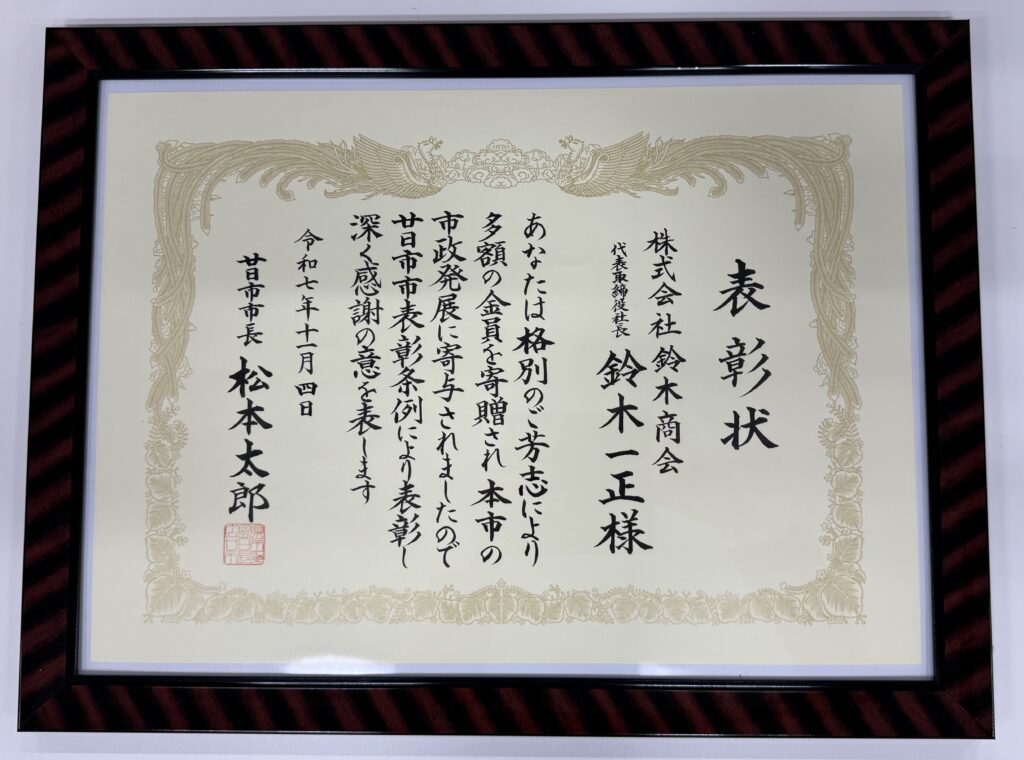 表彰状
株式会社鈴木商会
代表取締役社長
鈴木一正様
あなたは格別のご芳志により
多額の金員を寄贈され本市の
市政発展に寄与されましたので
廿日市市表彰条例により表彰し
深く感謝の意を表します
令和七年十一月四日
廿日市市長 松本太郎